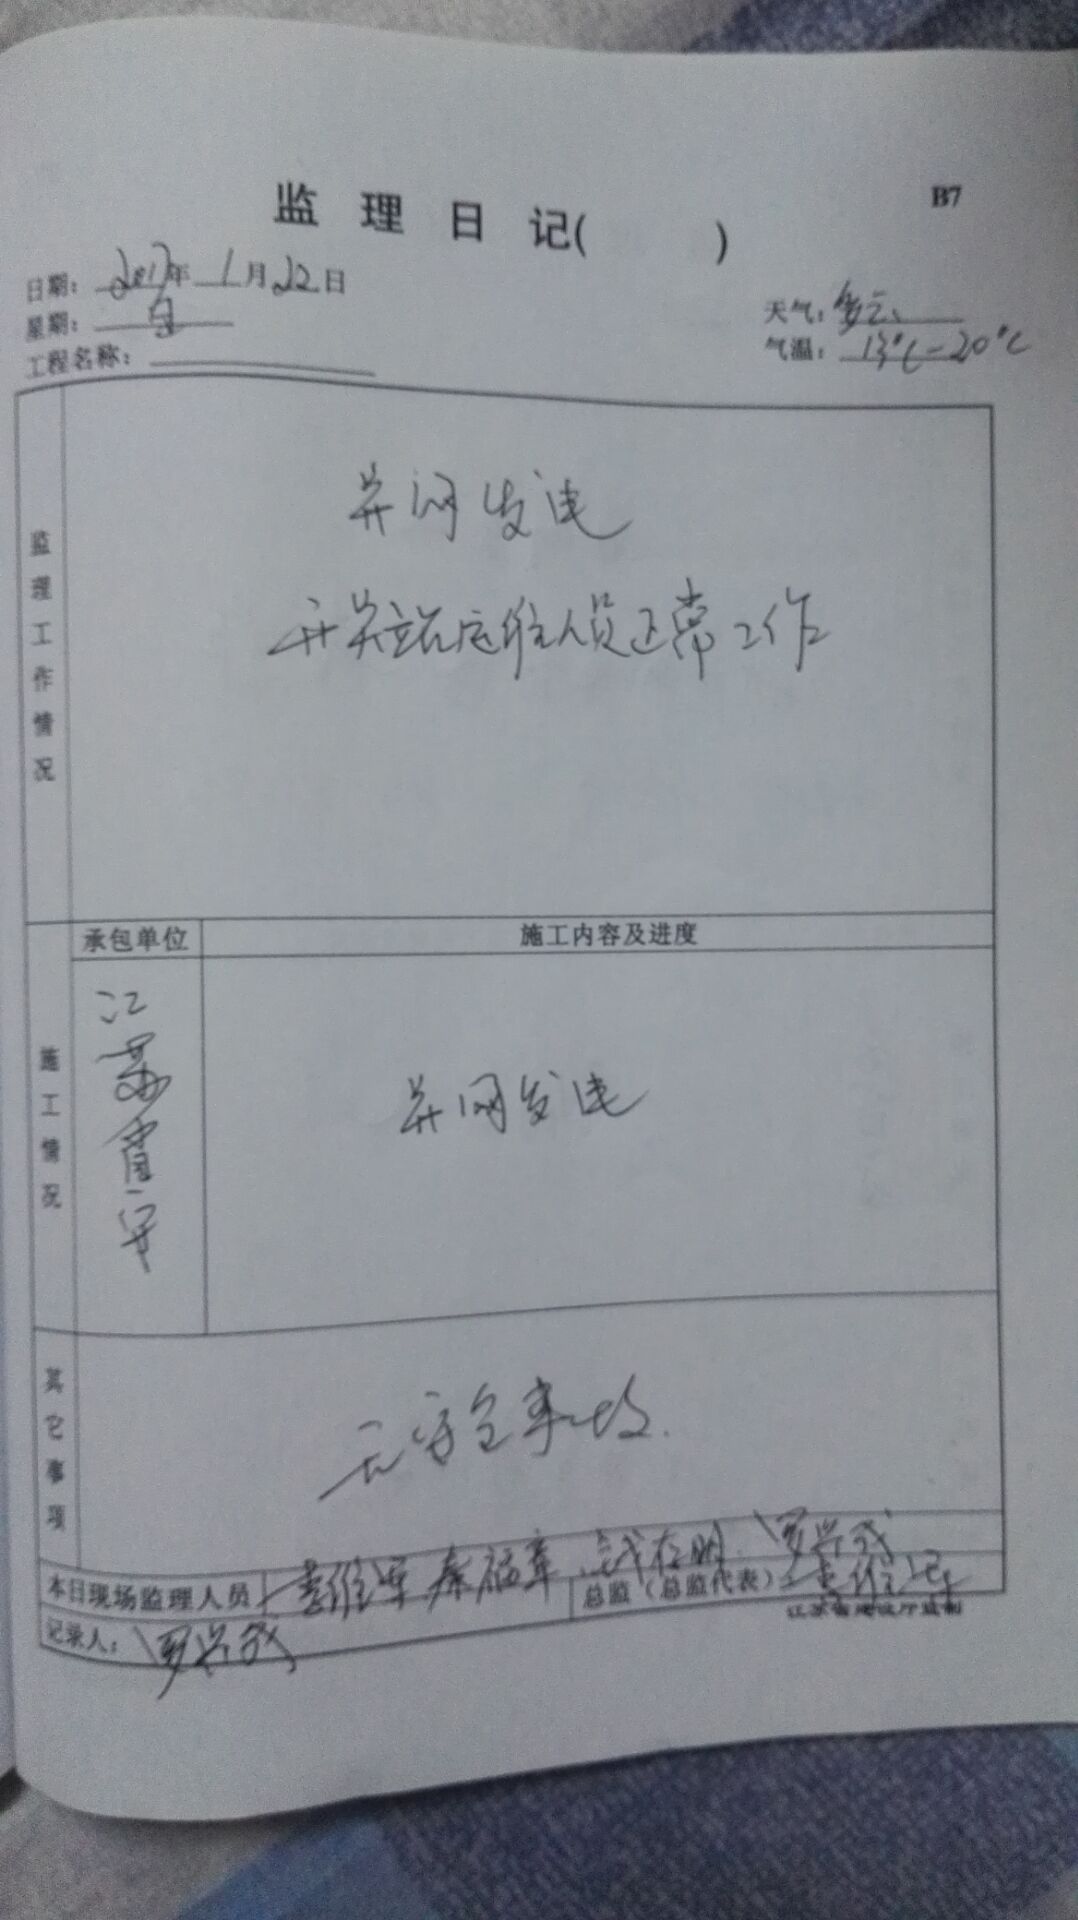 B7
监理日记( )
日期: 2017年1月22日
星期: 日
工程名称:
天气: 多云
气温: 13℃-20℃
监理工作情况
并网发电
开关站运维人员正常工作
承包单位
施工内容及进度
施工情况
江苏
并网发电
其它事项
无安全事故.
本日现场监理人员
秦福章 罗兴成
总监（总监代表）
江苏省建设厅监制
记录人: 罗兴成